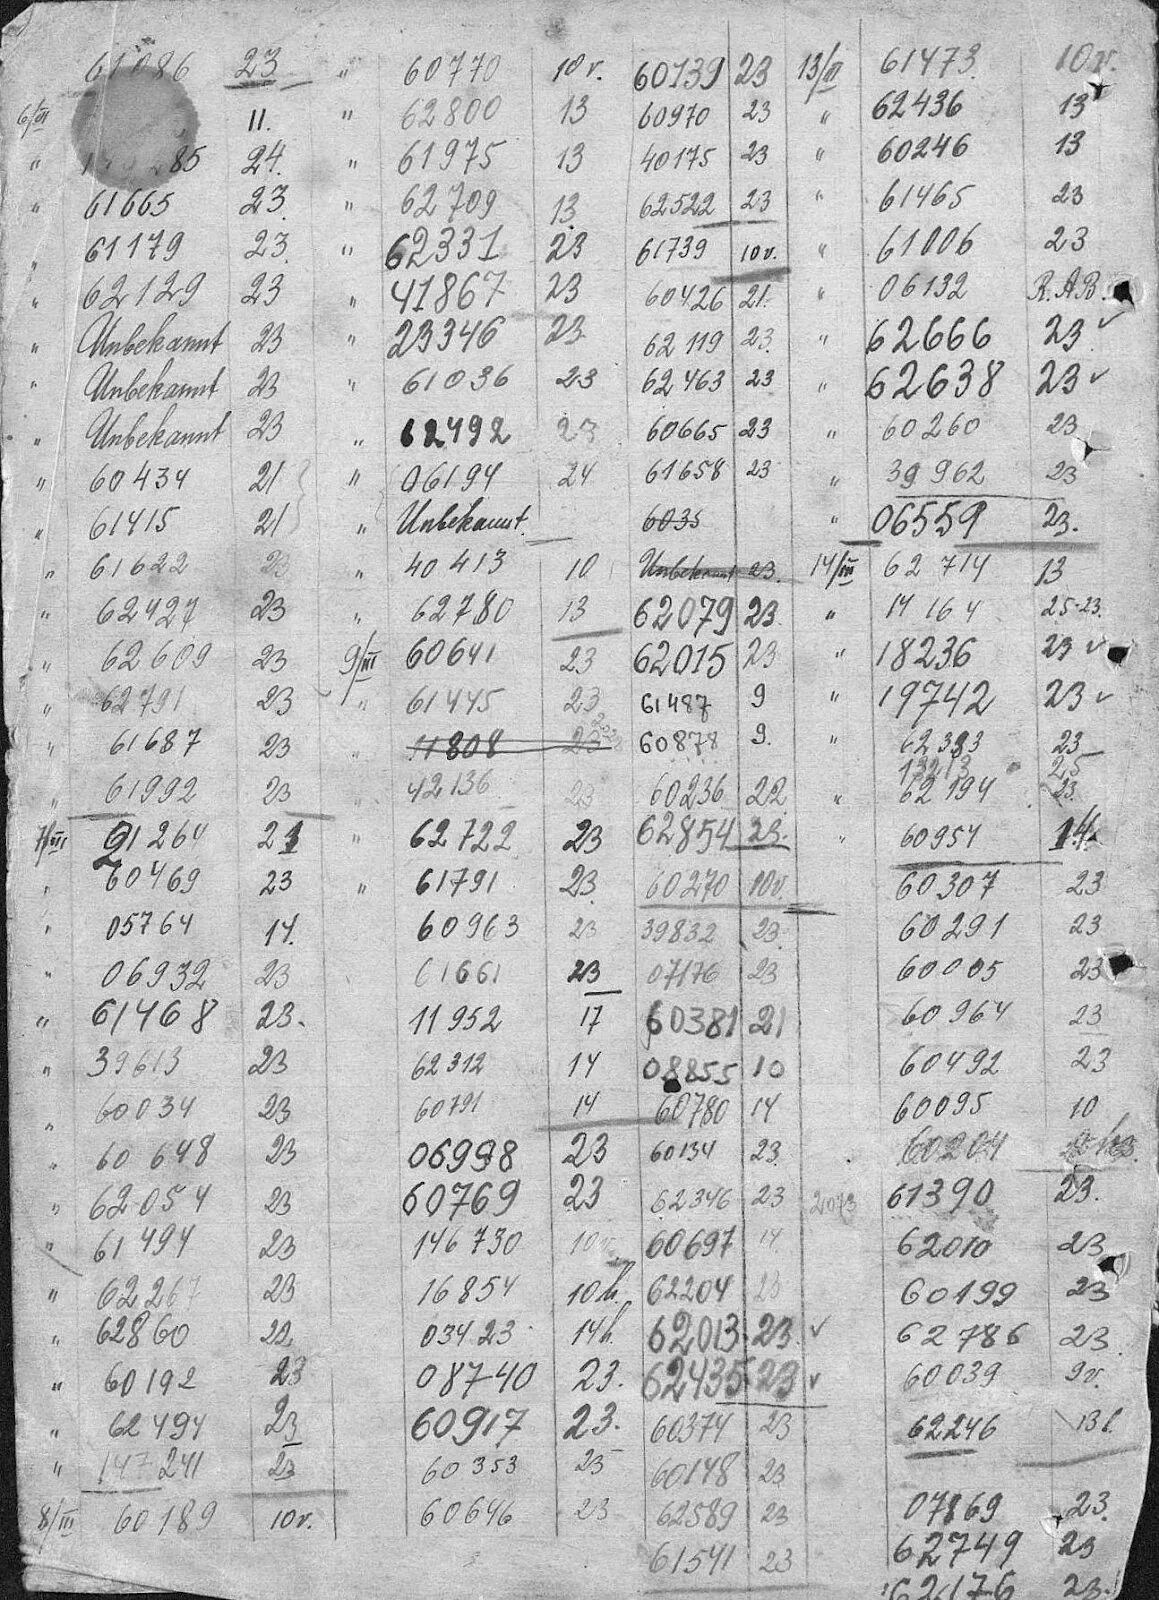 61086 23
6/III 11.
" 285 24.
" 61665 23.
" 61179 23.
" 62129 23
" Unbekannt 23
" Unbekannt 23
" Unbekannt 23
" 60434 21
" 61415 21
" 61622 23
" 62427 23
" 62609 23
" 62791 23
" 61687 23
" 61992 23
7/III 21264 21
" 60469 23
" 05764 14.
" 06932 23
" 61468 23.
" 39613 23
" 60034 23
" 60648 23
" 62054 23
" 61494 23
" 62267 23
" 62860 22
" 60192 23
" 62494 23
" 147241 23
8/III 60189 10v.
" 60770 10v.
" 62800 13
" 61975 13
" 62709 13
" 62331 23
" 41867 23
" 23346 23
" 61036 23
" 62492 23
" 06194 24
" Unbekannt.
" 40413 10
" 62780 13
9/III 60641 23
" 61445 23
" 11808 23
" 42136 23
" 62722 23
" 61791 23
60963 23
61661 23
11952 17
62312 14
60791 14
06998 23
60769 23
146730 10v.
16854 10h.
03423 14h.
08740 23.
60917 23.
60353 25
60646 23
60139 23
60970 23
40175 23
62522 23
61739 10v.
60426 21.
62119 23.
62463 23
60665 23
61658 23
6035
Unbekannt 23.
62079 23.
62015 23
61487 9
60878 9.
60236 22
62854 23.
60270 10v.
39832 23
07176 23
60381 21
08855 10
60780 14
60134 23
62346 23
60697 14
62204 23
62013 23 ✓
62435 23 ✓
60374 23
60148 23
62589 23
61541 23
13/III 61473 10v.
" 62436 13
" 60246 13
" 61465 23
" 61006 23
" 06132 R.A.B.
" 62666 23 ✓
" 62638 23 ✓
" 60260 23
" 39962 23
" 06559 23.
14/III 62714 13
" 14164 25-23.
" 18236 23 ✓
" 19742 23 ✓
" 62383 23
13213 25
" 62194 23.
" 60954 14.
60307 23
60291 23
60005 23
60964 23
60492 23
60095 10
60204
2073 61390 23.
62010 23
60199 23
62786 23
60039 9v.
62246 13h.
07869 23.
62749 23
62176 23.